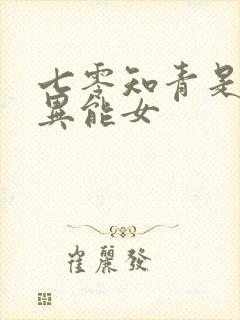 七零知青是
異能女
崔麗發